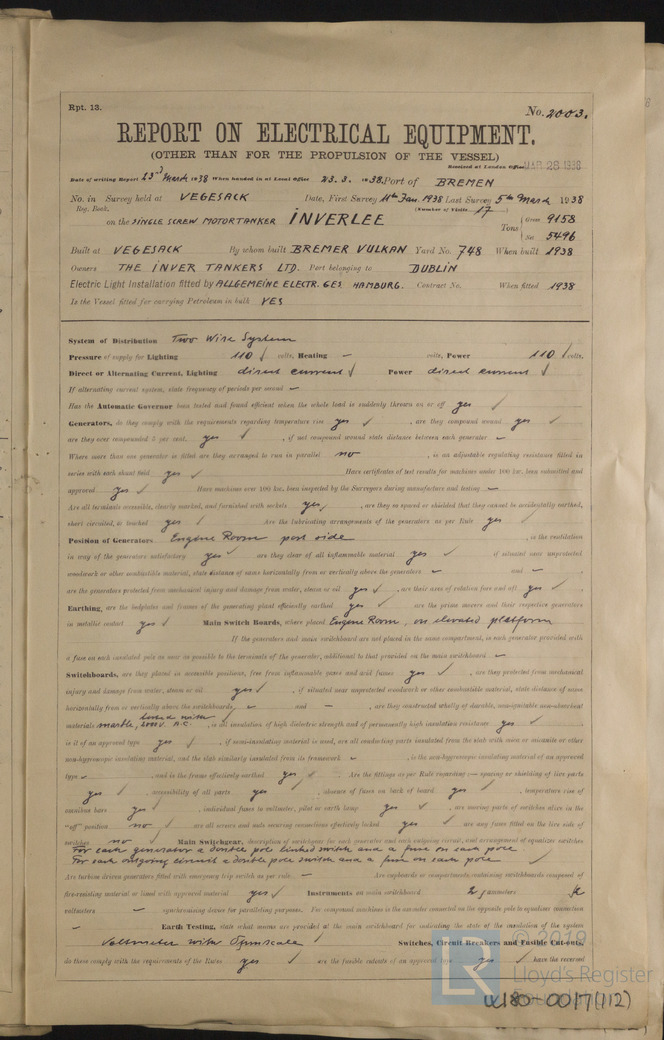 Rpt. 13.
No. 2003.
REPORT ON ELECTRICAL EQUIPMENT.
(OTHER THAN FOR THE PROPULSION OF THE VESSEL)
Received at London Office MAR 28 1938
Date of writing Report 23rd March 1938 When handed in at Local Office 23.3.1938. Port of BREMEN
No. in Survey held at VEGESACK Date, First Survey 11th Jan. 1938 Last Survey 5th March 1938
Reg. Book. (Number of Visits 17)
on the SINGLE SCREW MOTORTANKER INVERLEE Tons { Gross 9158
Net 5496
Built at VEGESACK By whom built BREMER VULKAN Yard No. 748 When built 1938
Owners THE INVER TANKERS LTD. Port belonging to DUBLIN
Electric Light Installation fitted by ALLGEMEINE ELECTR. GES HAMBURG. Contract No. When fitted 1938
Is the Vessel fitted for carrying Petroleum in bulk YES
System of Distribution Two Wire System
Pressure of supply for Lighting 110 ✓ volts, Heating – volts, Power 110 ✓ volts.
Direct or Alternating Current, Lighting direct current ✓ Power direct current ✓
If alternating current system, state frequency of periods per second –
Has the Automatic Governor been tested and found efficient when the whole load is suddenly thrown on or off yes ✓
Generators, do they comply with the requirements regarding temperature rise yes ✓, are they compound wound yes ✓
are they over compounded 5 per cent. yes ✓, if not compound wound state distance between each generator –
Where more than one generator is fitted are they arranged to run in parallel no, is an adjustable regulating resistance fitted in
series with each shunt field yes ✓ Have certificates of test results for machines under 100 kw. been submitted and
approved yes ✓ Have machines over 100 kw. been inspected by the Surveyors during manufacture and testing –
Are all terminals accessible, clearly marked, and furnished with sockets yes, are they so spaced or shielded that they cannot be accidentally earthed,
short circuited, or touched yes ✓ Are the lubricating arrangements of the generators as per Rule yes ✓
Position of Generators Engine Room port side, is the ventilation
in way of the generators satisfactory yes ✓ are they clear of all inflammable material yes ✓ if situated near unprotected
woodwork or other combustible material, state distance of same horizontally from or vertically above the generators – and –
are the generators protected from mechanical injury and damage from water, steam or oil yes ✓, are their axes of rotation fore and aft yes ✓
Earthing, are the bedplates and frames of the generating plant efficiently earthed yes ✓ are the prime movers and their respective generators
in metallic contact yes ✓ Main Switch Boards, where placed Engine Room, on elevated platform
If the generators and main switchboard are not placed in the same compartment, is each generator provided with
a fuse on each insulated pole as near as possible to the terminals of the generator, additional to that provided on the main switchboard –
Switchboards, are they placed in accessible positions, free from inflammable gases and acid fumes yes ✓, are they protected from mechanical
injury and damage from water, steam or oil yes ✓, if situated near unprotected woodwork or other combustible material, state distance of same
horizontally from or vertically above the switchboards – and –, are they constructed wholly of durable, non-ignitable non-absorbent
materials marble, tested with 2000 V. A.C., is all insulation of high dielectric strength and of permanently high insulation resistance yes ✓
is it of an approved type yes ✓, if semi-insulating material is used, are all conducting parts insulated from the slab with mica or micanite or other
non-hygroscopic insulating material, and the slab similarly insulated from its framework –, is the non-hygroscopic insulating material of an approved
type –, and is the frame effectively earthed yes ✓. Are the fittings as per Rule regarding:— spacing or shielding of live parts
yes ✓, accessibility of all parts yes ✓, absence of fuses on back of board yes ✓, temperature rise of
omnibus bars yes ✓, individual fuses to voltmeter, pilot or earth lamp yes ✓, are moving parts of switches alive in the
"off" position no ✓ are all screws and nuts securing connections effectively locked yes ✓ are any fuses fitted on the live side of
switches no ✓ Main Switchgear, description of switchgear for each generator and each outgoing circuit, and arrangement of equaliser switches
For each generator a double pole linked switch and a fuse on each pole
For each outgoing circuit a double pole switch and a fuse on each pole ✓
Are turbine driven generators fitted with emergency trip switch as per rule – Are cupboards or compartments containing switchboards composed of
fire-resisting material or lined with approved material yes ✓ Instruments on main switchboard 2 ammeters
voltmeters – synchronising device for paralleling purposes. For compound machines is the ammeter connected on the opposite pole to equaliser connection
– Earth Testing, state what means are provided at the main switchboard for indicating the state of the insulation of the system
Voltmeter with Ohmscale Switches, Circuit Breakers and Fusible Cut-outs,
do these comply with the requirements of the Rules yes ✓ are the fusible cutouts of an approved type yes ✓ have the reversed
© 2019
Lloyd's Register
Foundation
LR
W180-0017(1/2)